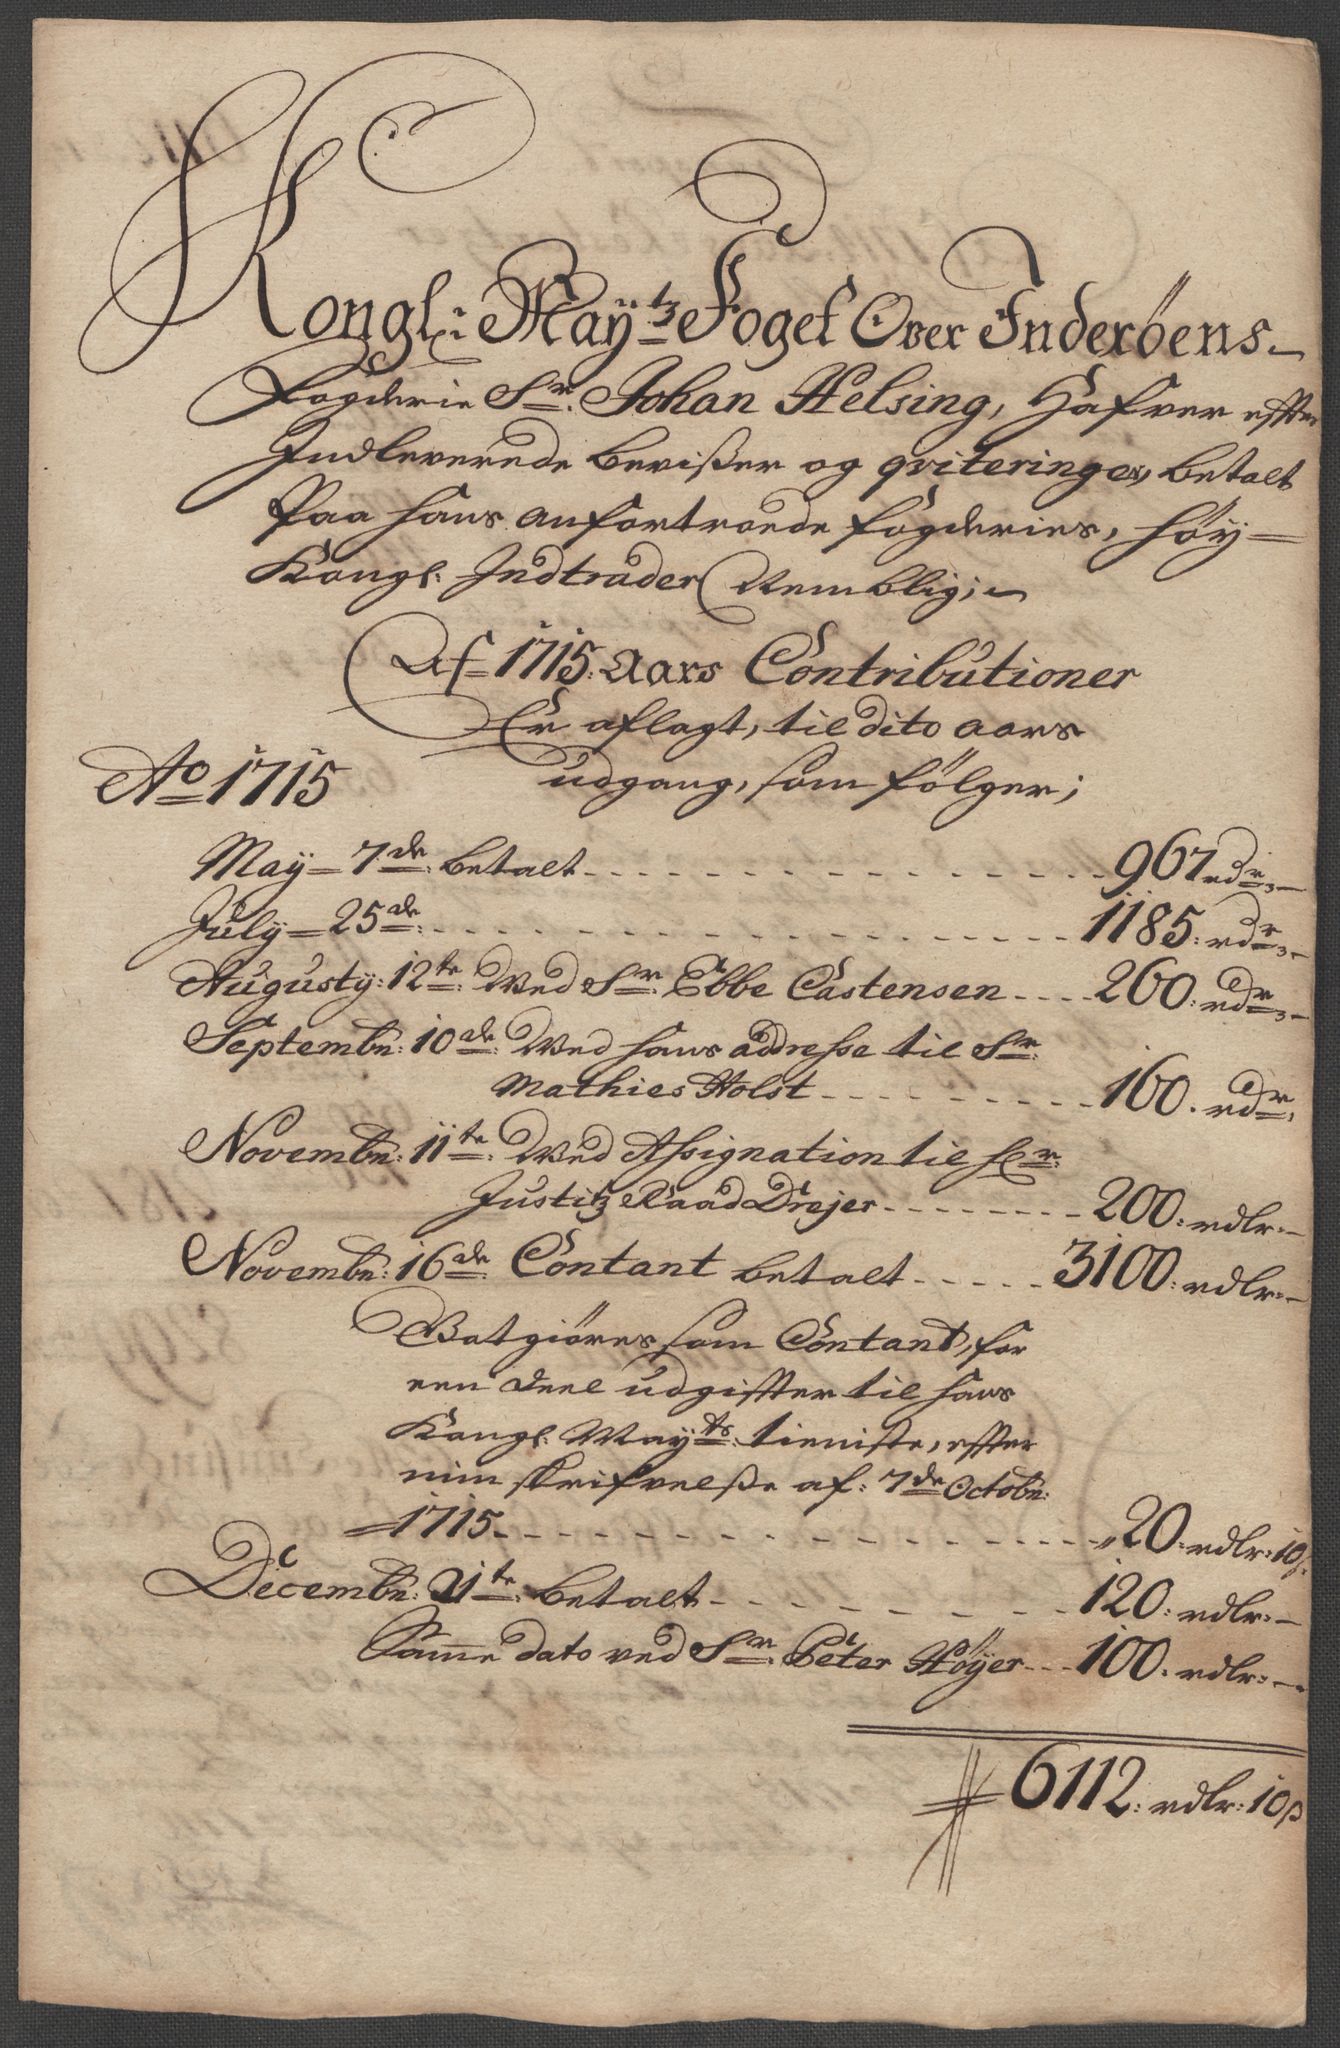 Kongl: Maÿtz Foget Over Inderöens
Fogderie Sr. Johan Helsing, Hafver effter
Indleverede beviißer og qviteringer, betalt
Paa hans anfortroede fogderies, höÿ-
Kongl. Indtrader Nemblig;
Af 1715 Aars Contributioner
Er aflagt, til dito aars
udgang, som fölger;
Ao 1715
May 7de betalt - - - 967 rdr,
July 25de - - - 1185 rdr,
Augustÿ: 12te Ved Sr. Ebbe Castensen - - - 260 rdr,
Septembr: 10de Ved hans addresse til Sr.
Mathies Holst - - - 160. rdr,
Novembr: 11te Ved Assignation til Hr.
Justitz Raad Drejer - - - 200: rdlr:
Novembr: 16de Contant betalt - - - 3100: rdlr:
Godtgiöres som Contant, for
een deel udgiffter til hans
Kongl. Mayts. tieniste, effter
min skrifvelße af: 7de Octobr:
1715 - - - 20: rdlr: 10ß
Decembr: 21te betalt - - - 120: rdlr:
Samme dato ved Sr. Peter Höÿer - - - 100: rdlr:
6112: rdlr: 10ß